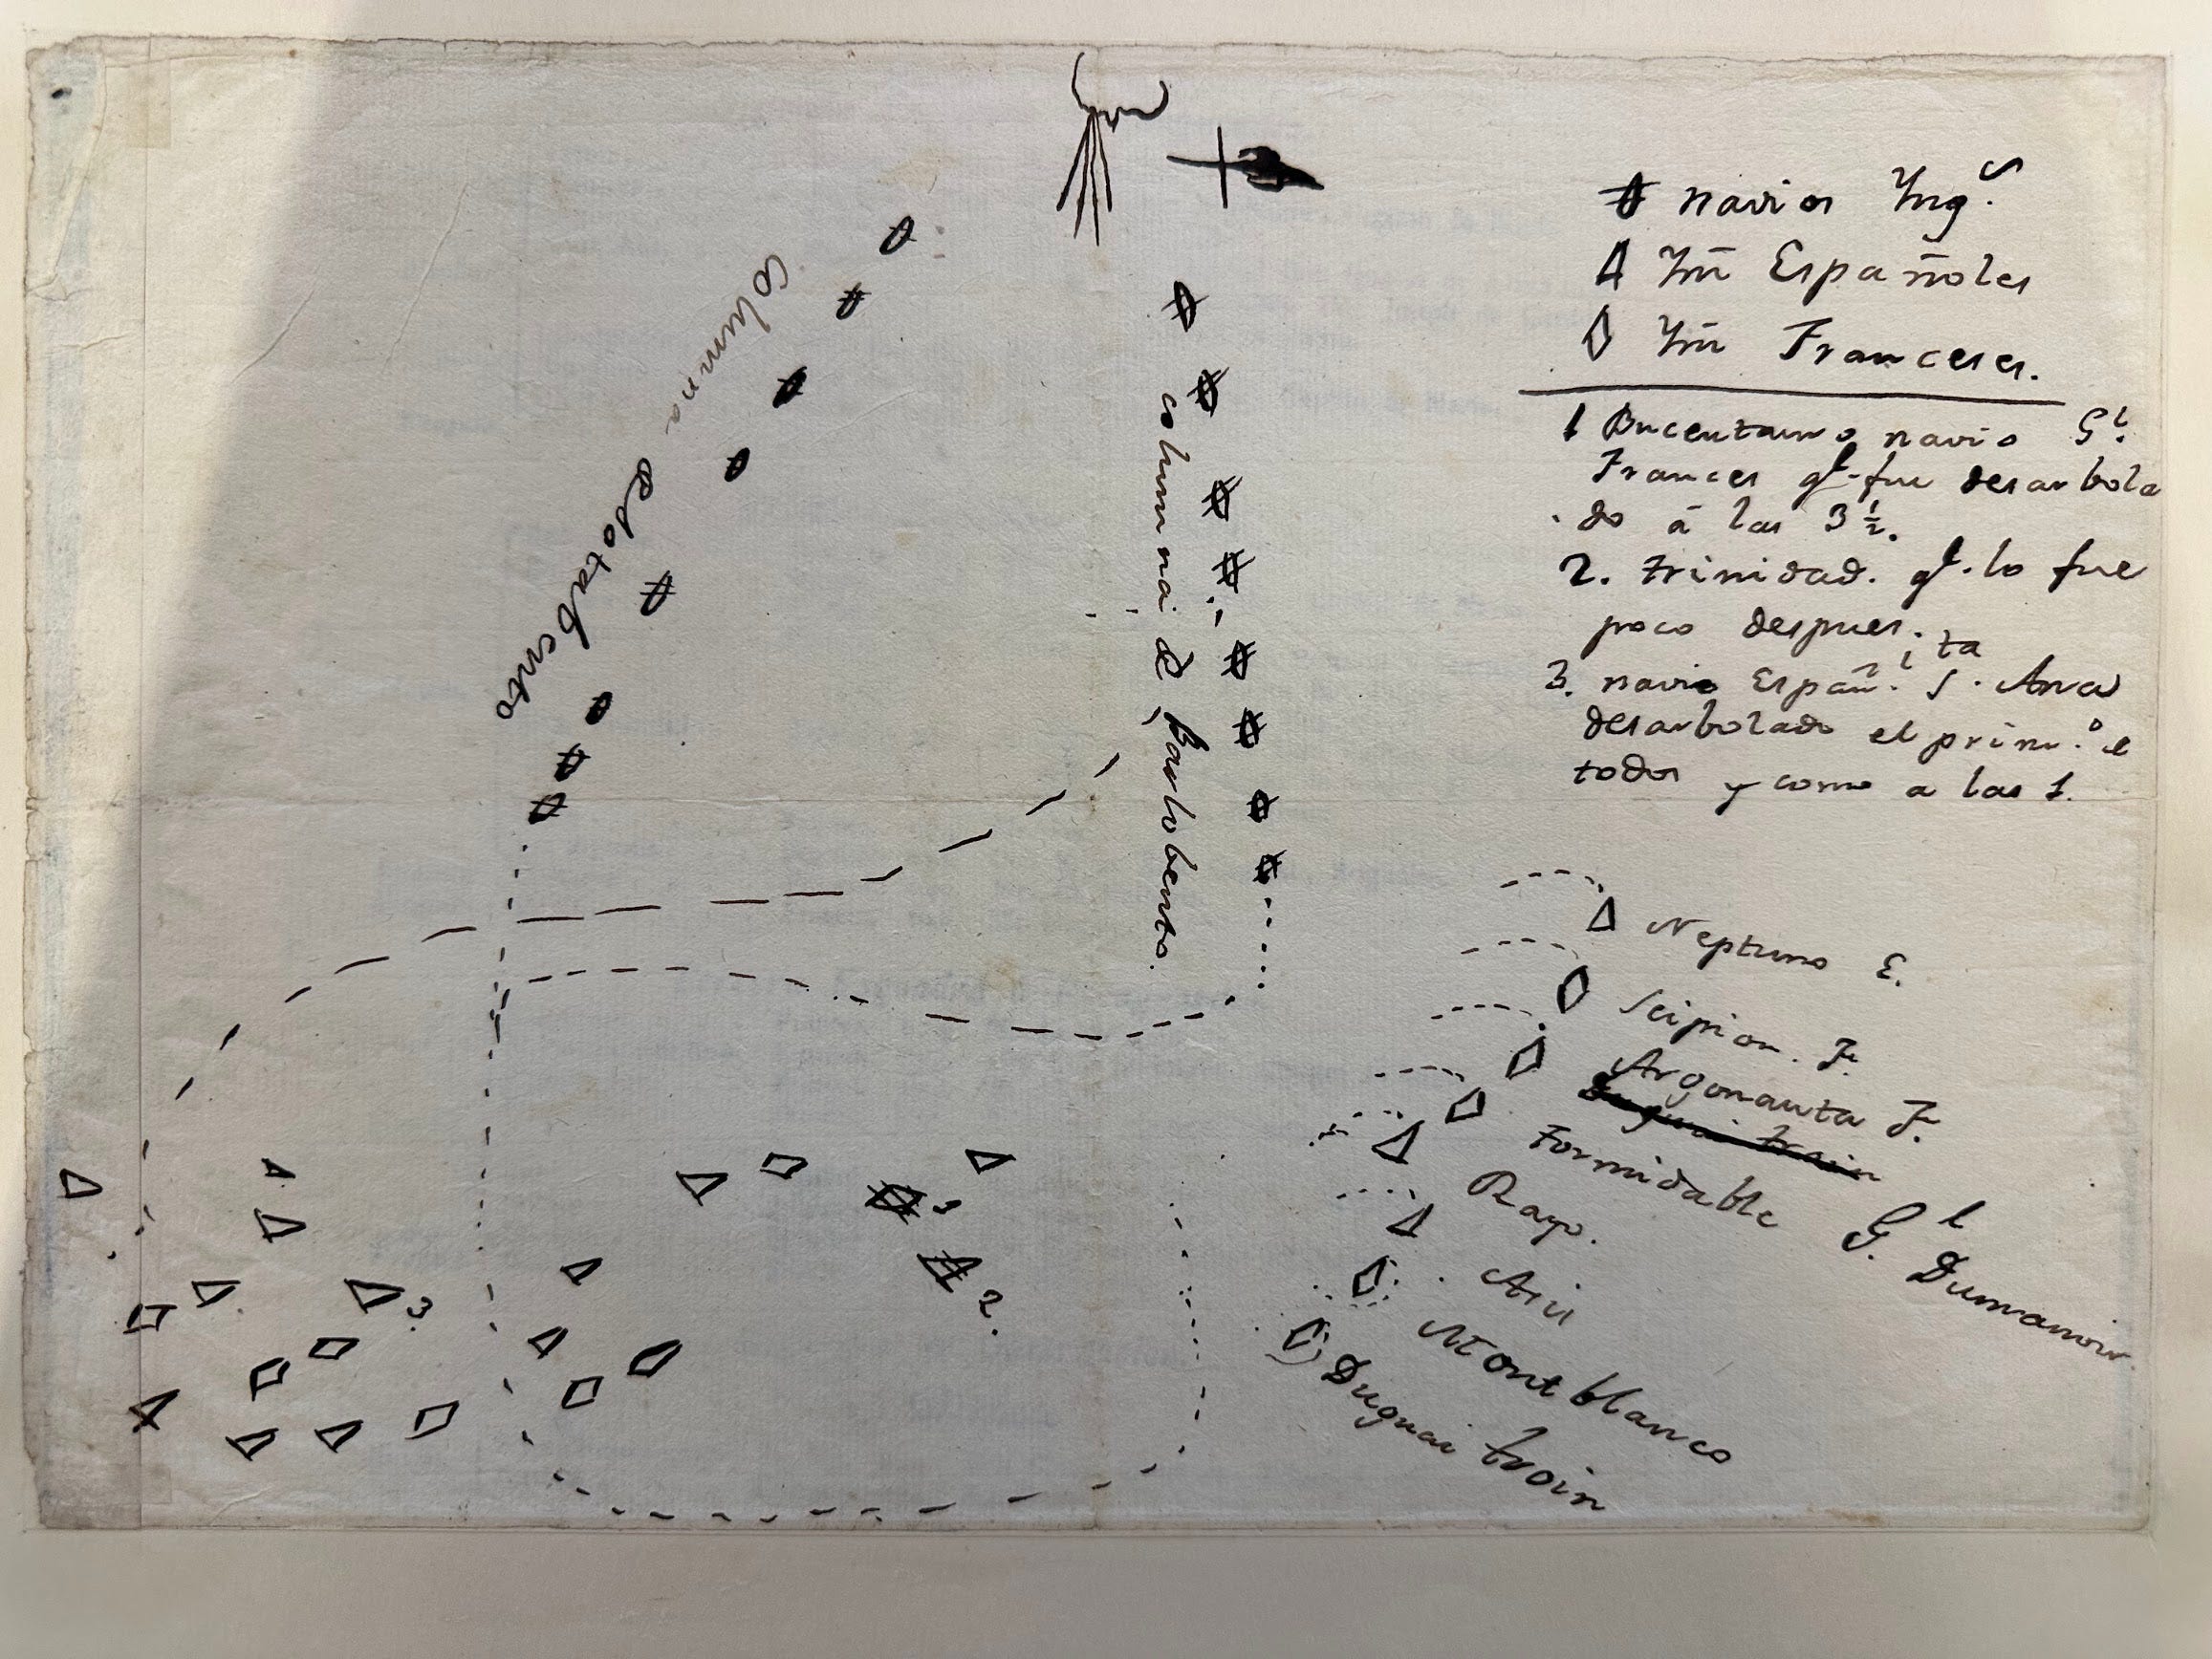 navios Yng.s
Ym̄ Españoles
Ym̄ Franceses.
1 Bucentauro navio G.l
Frances q.e fue desarbola
do á las 3 ½.
2. trinidad. q.e lo fue
poco despues.
3. navio Españ.l S.ta Ana
desarbolado el prim.o e
todos y como a las 1.
columna
sotabento
columna d barlobento.
Neptuno E.
Scipion. F.
Argonauta F.
Duguai troin
Formidable G.l Dumanoir
Rayo.
Asis
Mont blanco
Duguai troin
3
2.
3